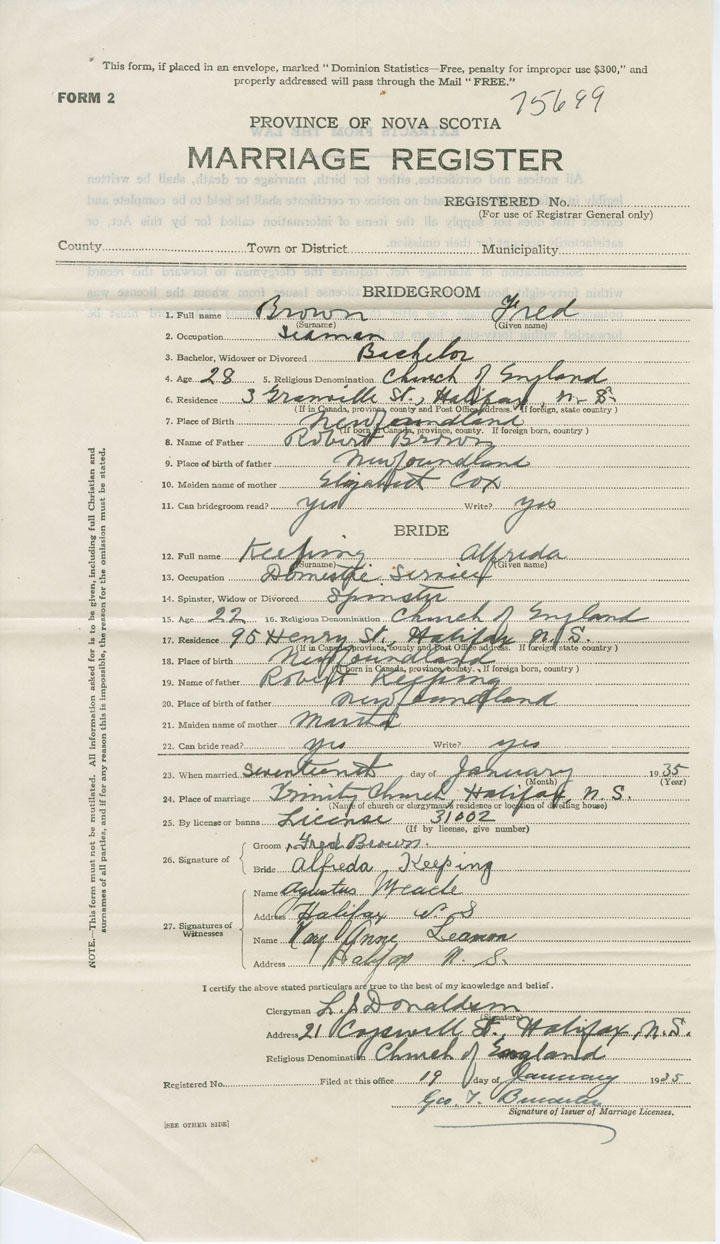 This form, if placed in an envelope, marked "Dominion Statistics—Free, penalty for improper use $300," and
properly addressed will pass through the Mail "FREE."
FORM 2
75699
PROVINCE OF NOVA SCOTIA
MARRIAGE REGISTER
REGISTERED No.
(For use of Registrar General only)
County Town or District Municipality
BRIDEGROOM
1. Full name Brown Fred
(Surname) (Given name)
2. Occupation Seaman
3. Bachelor, Widower or Divorced Bachelor
4. Age 28 5. Religious Denomination Church of England
6. Residence 3 Granville St., Halifax, N. S.
(If in Canada, province, county and Post Office address. If foreign, state country)
7. Place of Birth Newfoundland
(If born in Canada, province, county. If foreign born, country)
8. Name of Father Robert Brown
9. Place of birth of father Newfoundland
10. Maiden name of mother Elizabeth Cox
11. Can bridegroom read? yes Write? yes
BRIDE
12. Full name Keeping Alfreda
(Surname) (Given name)
13. Occupation Domestic Service
14. Spinster, Widow or Divorced Spinster
15. Age 22 16. Religious Denomination Church of England
17. Residence 95 Henry St, Halifax N.S.
(If in Canada, province, county and Post Office address. If foreign, state country)
18. Place of birth Newfoundland
(If born in Canada, province, county. If foreign born, country)
19. Name of father Robert Keeping
20. Place of birth of father Newfoundland
21. Maiden name of mother
22. Can bride read? yes Write? yes
23. When married seventeenth day of January 1935
(Month) (Year)
24. Place of marriage Trinity Church Halifax, N.S.
(Name of church or clergyman's residence or location of dwelling house)
25. By license or banns License 31002
(If by license, give number)
26. Signature of
Groom Fred Brown.
Bride Alfreda Keeping
27. Signatures of Witnesses
Name Agustus Meade
Address Halifax N S
Name Mary Anne Leamon
Address Halifax N. S.
I certify the above stated particulars are true to the best of my knowledge and belief.
Clergyman L. J. Donaldson
(Signature)
Address 21 St., Halifax, N.S.
Religious Denomination Church of England
Registered No. Filed at this office 19 day of January 1935
Geo. T.
Signature of Issuer of Marriage Licenses.
[SEE OTHER SIDE]
NOTE.—This form must not be mutilated. All information asked for is to be given, including full Christian and
surnames of all parties, and if for any reason this is impossible, the reason for the omission must be stated.